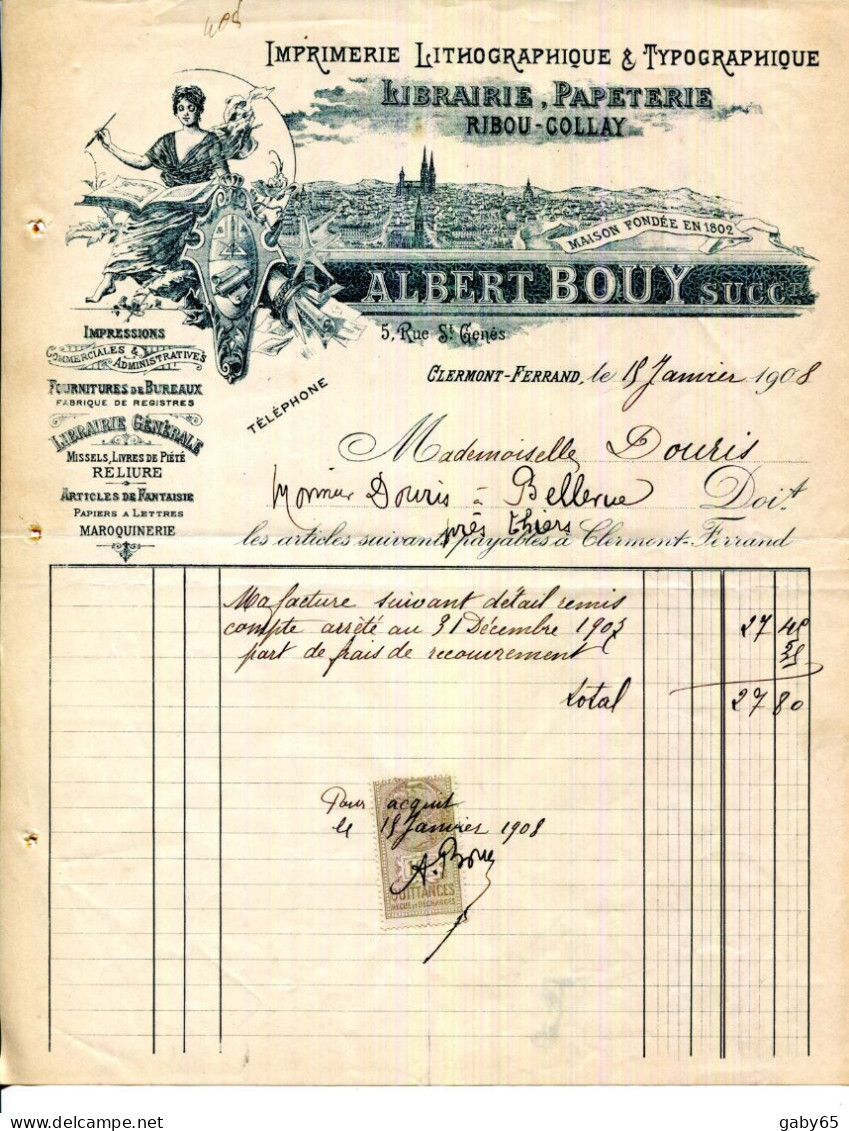 IMPRIMERIE LITHOGRAPHIQUE & TYPOGRAPHIQUE
LIBRAIRIE, PAPETERIE
RIBOU-COLLAY
MAISON FONDÉE EN 1802
ALBERT BOUY SUCC.
5, Rue St Genès
IMPRESSIONS
COMMERCIALES & ADMINISTRATIVES
FOURNITURES DE BUREAUX
FABRIQUE DE REGISTRES
LIBRAIRIE GÉNÉRALE
MISSELS, LIVRES DE PIÉTÉ
RELIURE
ARTICLES DE FANTAISIE
PAPIERS A LETTRES
MAROQUINERIE
TÉLÉPHONE
CLERMONT-FERRAND, le 15 Janvier 1908
Mademoiselle Douris
Monsieur Douris à Bellevue Doit
près Thiers
les articles suivants payables à Clermont-Ferrand
Ma facture suivant détail remis
compte arrêté au 31 Décembre 1907 27 45
part de frais de recouvrement 35
Total 27 80
Pour acquit
le 15 Janvier 1908
A. Bouy
QUITTANCES
REÇUS ET DÉCHARGES
delcampe.net
gaby65